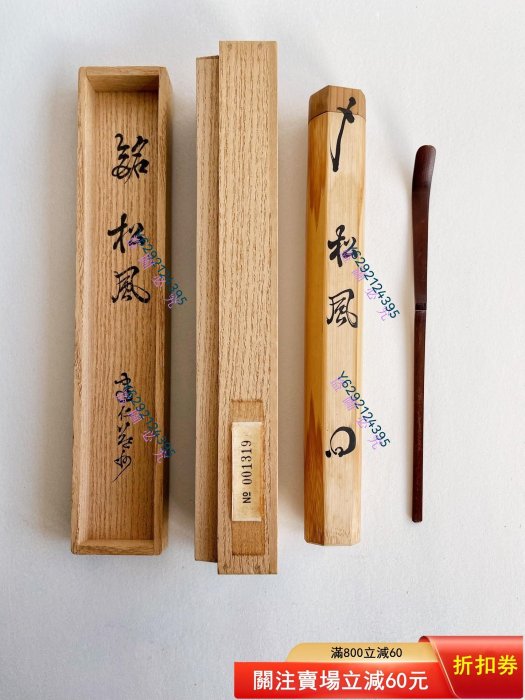 銘
松風
建仁
№ 001319
〆
松風
Y6292124395
Y6292124395
Y6292124395
滿800立減60
關注賣場立減60元
折扣券